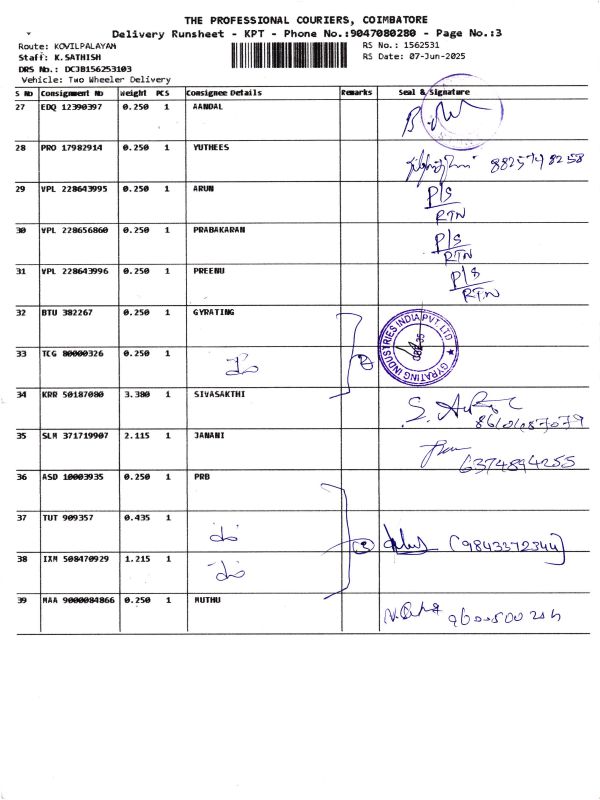 THE PROFESSIONAL COURIERS, COIMBATORE
Delivery Runsheet - KPT - Phone No.:9047080280 - Page No.:3
Route: KOVILPALAYAM
RS No.: 1562531
Staff: K.SATHISH
RS Date: 07-Jun-2025
DRS No.: DCJB156253103
Vehicle: Two Wheeler Delivery
S No Consignment No Weight PCS Consignee Details Remarks Seal & Signature
27 EDQ 12390397 0.250 1 AANDAL
28 PRO 17982914 0.250 1 YUTHEES 8825748258
29 VPL 228643995 0.250 1 ARUN P/S RTN
30 VPL 228656860 0.250 1 PRABAKARAN P/S RTN
31 VPL 228643996 0.250 1 PREENU P/S RTN
32 BTU 382267 0.250 1 GYRATING GYRATING INDUSTRIES INDIA PVT. LTD
33 TCG 80000326 0.250 1
34 KRR 50187080 3.380 1 SIVASAKTHI
35 SLM 371719907 2.115 1 JANANI 6374894255
36 ASD 10003935 0.250 1 PRB
37 TUT 909357 0.435 1 (9843372344)
38 IXM 508470929 1.215 1
39 MAA 9000084866 0.250 1 MUTHU